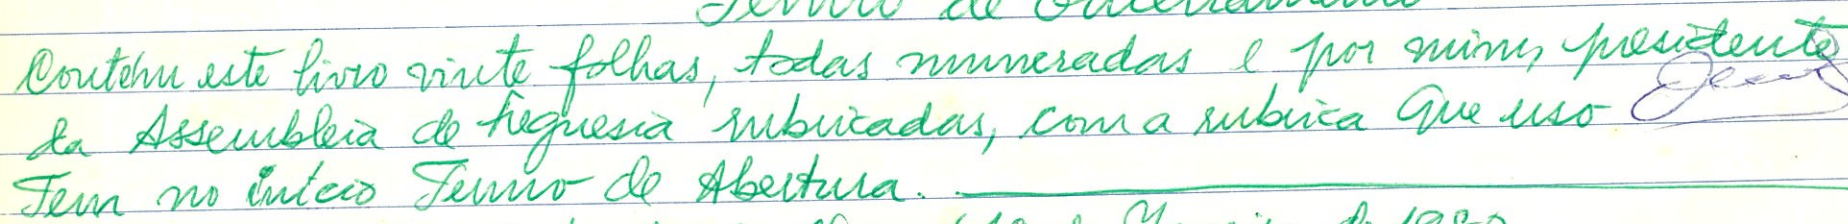 Termo de Encerramento
Contém este livro vinte folhas, todas numeradas e por mim, presidente
da Assembleia de freguesia rubricadas, com a rubrica que uso
Tem no início Termo de Abertura.
de 1980